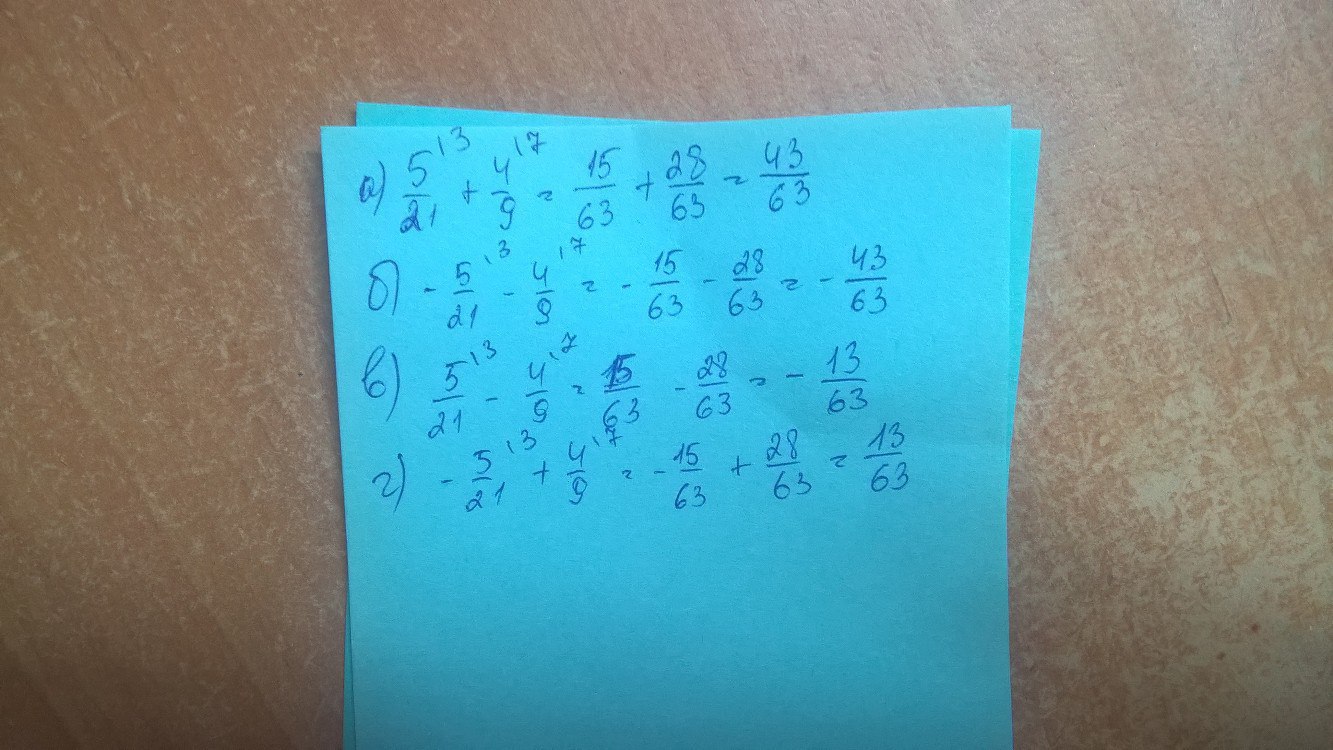 а) 5/21 ˡ3 + 4/9 ˡ7 = 15/63 + 28/63 = 43/63
б) - 5/21 ˡ3 - 4/9 ˡ7 = - 15/63 - 28/63 = - 43/63
в) 5/21 ˡ3 - 4/9 ˡ7 = 15/63 - 28/63 = - 13/63
г) - 5/21 ˡ3 + 4/9 ˡ7 = - 15/63 + 28/63 = 13/63